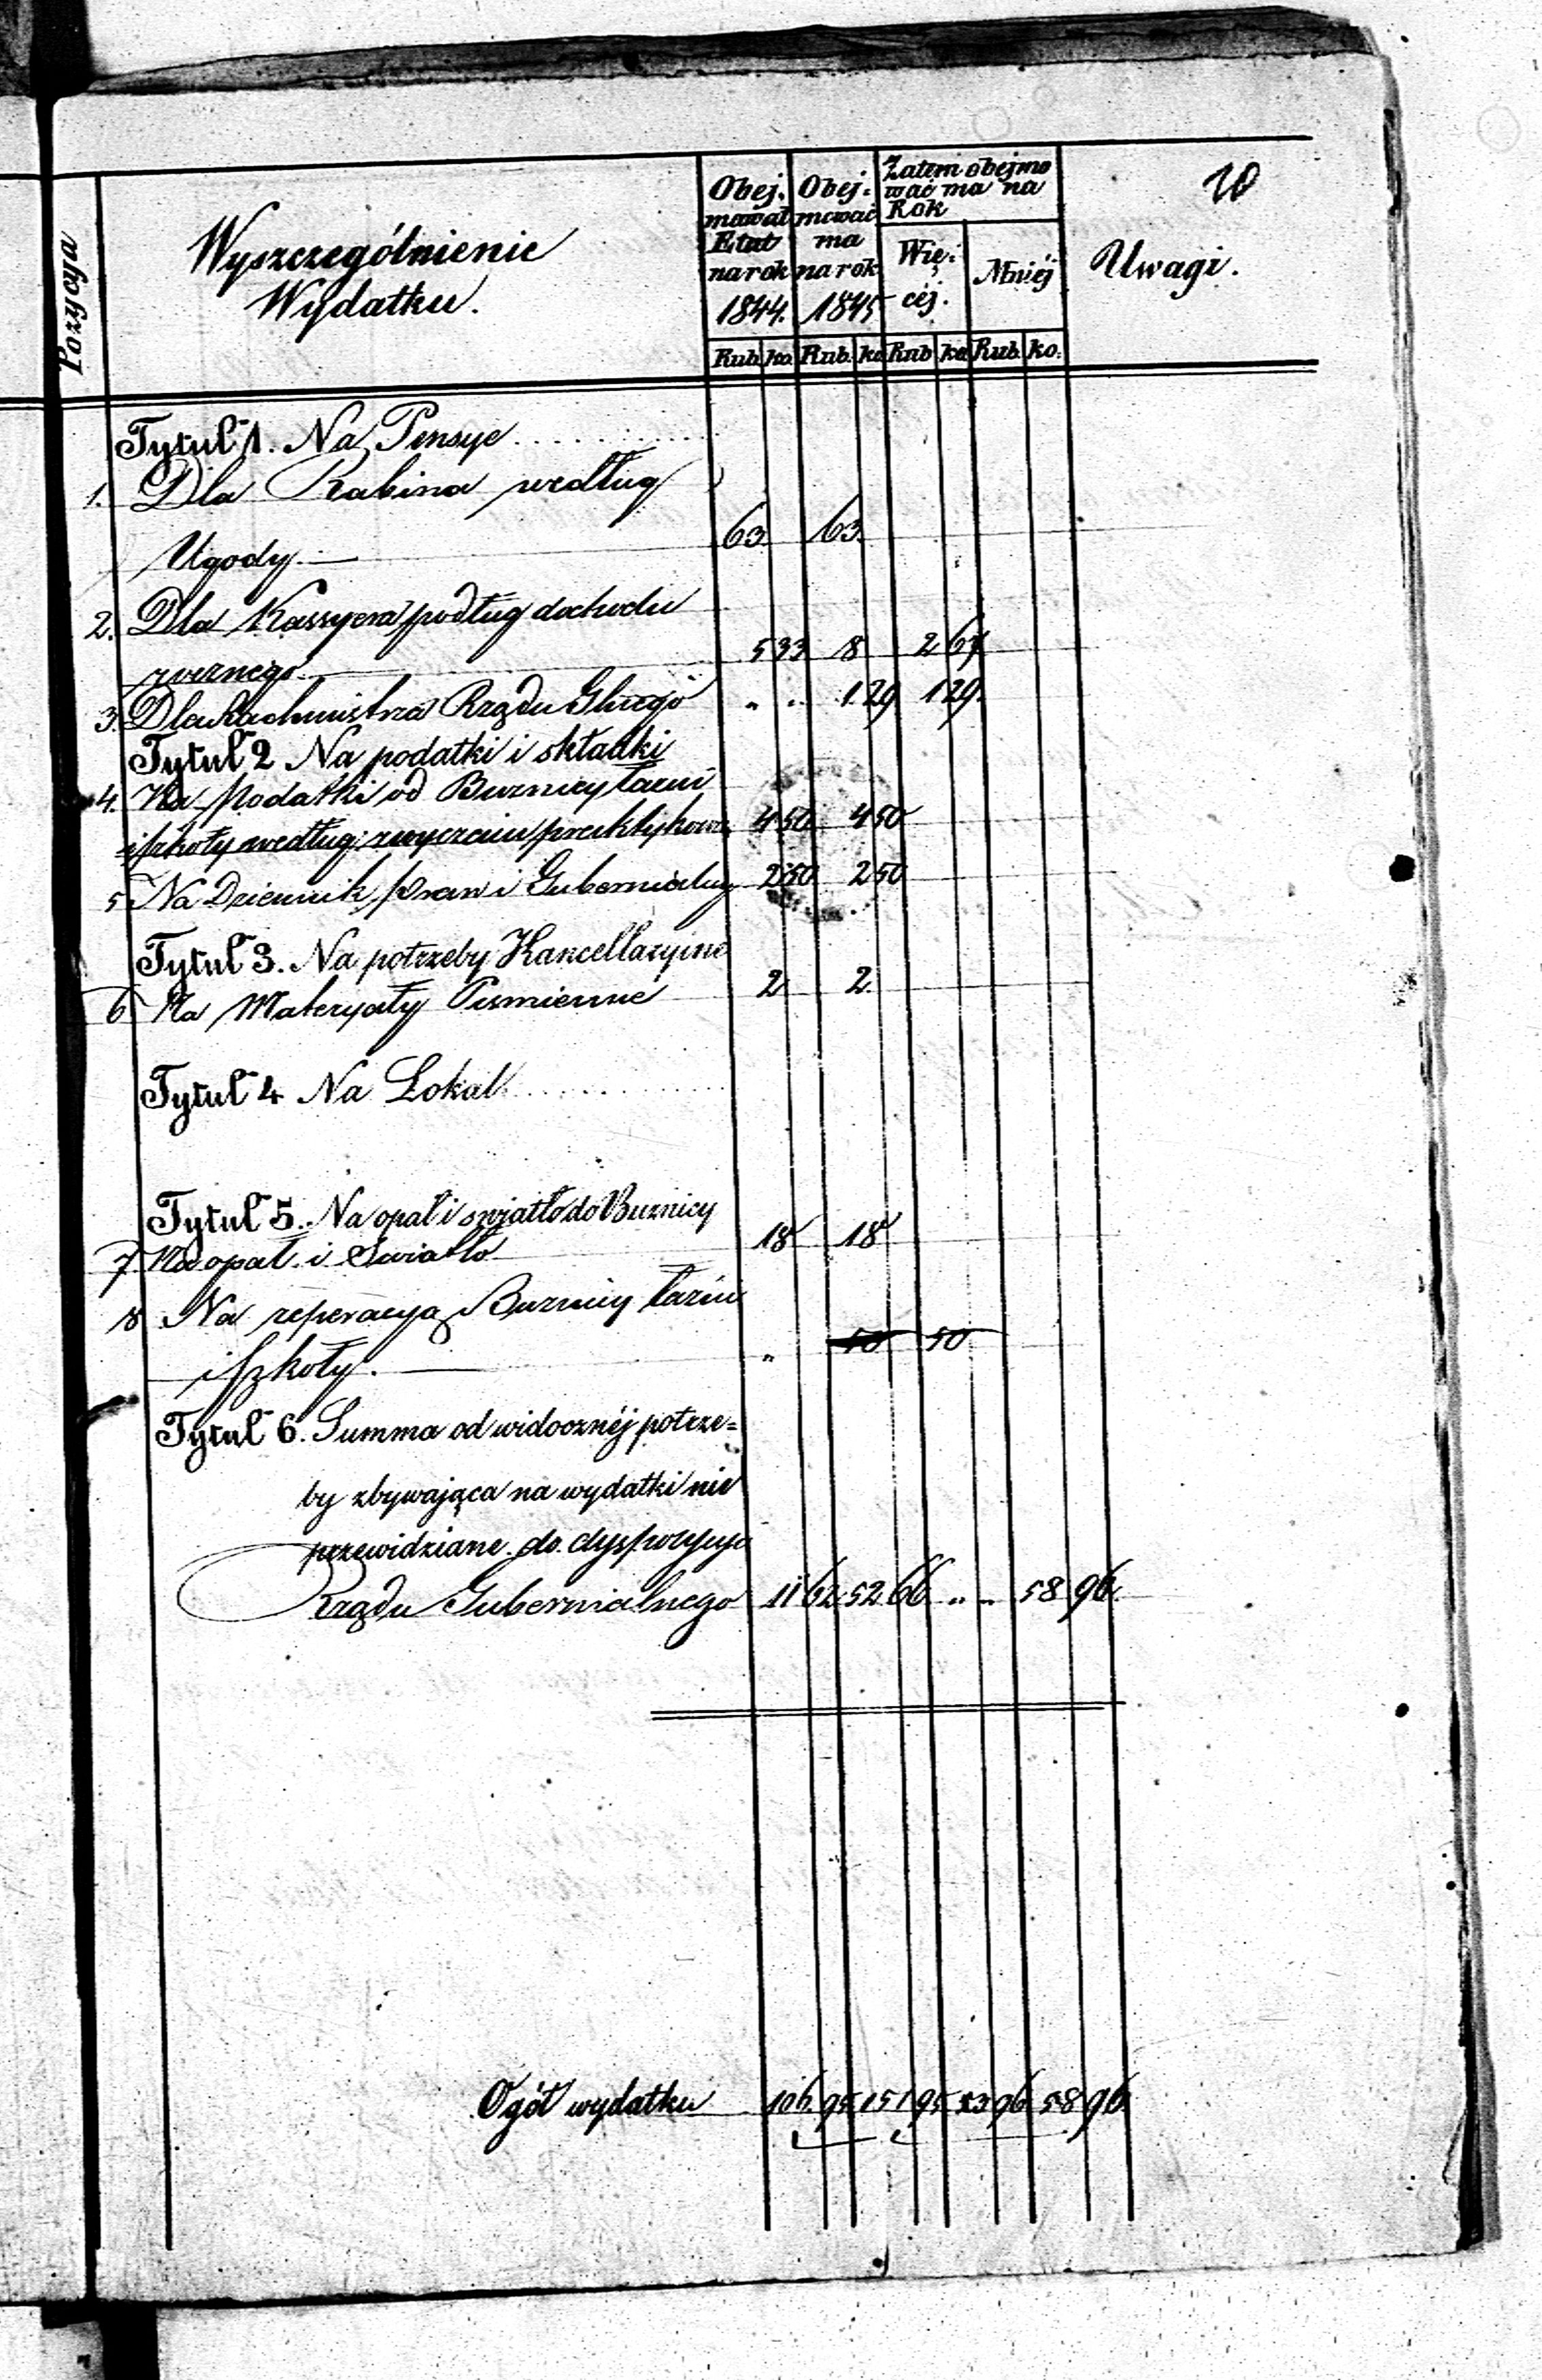 10
Pozycya
Wyszczególnienie
Wydatku.
Obej-
mował
Etat
na rok
1844.
Obej-
mować
ma
na rok
1845
Zatem obejmo
wać ma na
Rok
Wię-
céj.
Mniéj
Uwagi.
Rub. ko. Rub. ko Rub ko Rub. ko.
Tytuł 1. Na Pensye
1. Dla Rabina według
Ugody. 63. 63.
2. Dla Kassyera podług dochodu
rocznego 5 33 8 2 67
3. Dla Rachmistrza Rządu Glnego " " 1 29 1 29.
Tytuł 2 Na podatki i składki
4. Na podatki od Buznicy łazni
i szkoły według zwyczaiu praktykowa 4 50 4 50
5 Na Dziennik praw i Gubernialny 2 50 2 50
Tytuł 3. Na potrzeby Kancellaryine
6 Na Materyały Pismienne 2 2.
Tytuł 4 Na Lokal
Tytuł 5. Na opał i swiatło do Buznicy
7. Na opał i Swiatło 18 18
8 Na reperacyą Buznicy łazni
i szkoły. " 50 50
Tytuł 6. Summa od widocznéj potrze=
by zbywająca na wydatki nie
przewidziane do dyspozycyi
Rządu Gubernialnego 11 62 52 66 " " 58 96.
Ogół wydatku 106. 95. 151 95. 53 96 58 96.